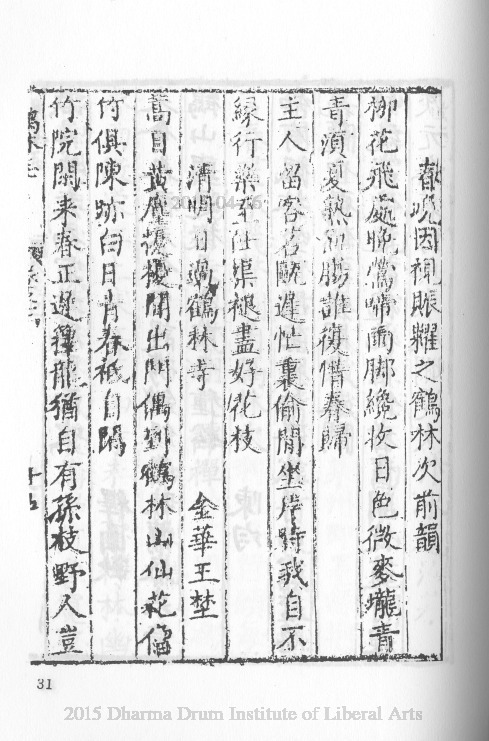 春晚因視賑糶之鶴林次前韻
柳花飛處晚鶯啼雨脚纔收日色微麥壠青
青須夏熟 腸誰復惜春歸
主人留客茗甌遲忙裏偷閒坐片時我自不
緣行樂至仕集褪盡好花枝
清明日 鶴林寺 金華王埜
蒿目黃塵 機聞出門偶到鶴林山仙花僊
竹俱陳跡白日青春祇自閒
竹院閒來春正遲籜龍猶自有孫枝野人豈
鶴林
31
2015 Dharma Drum Institute of Liberal Arts